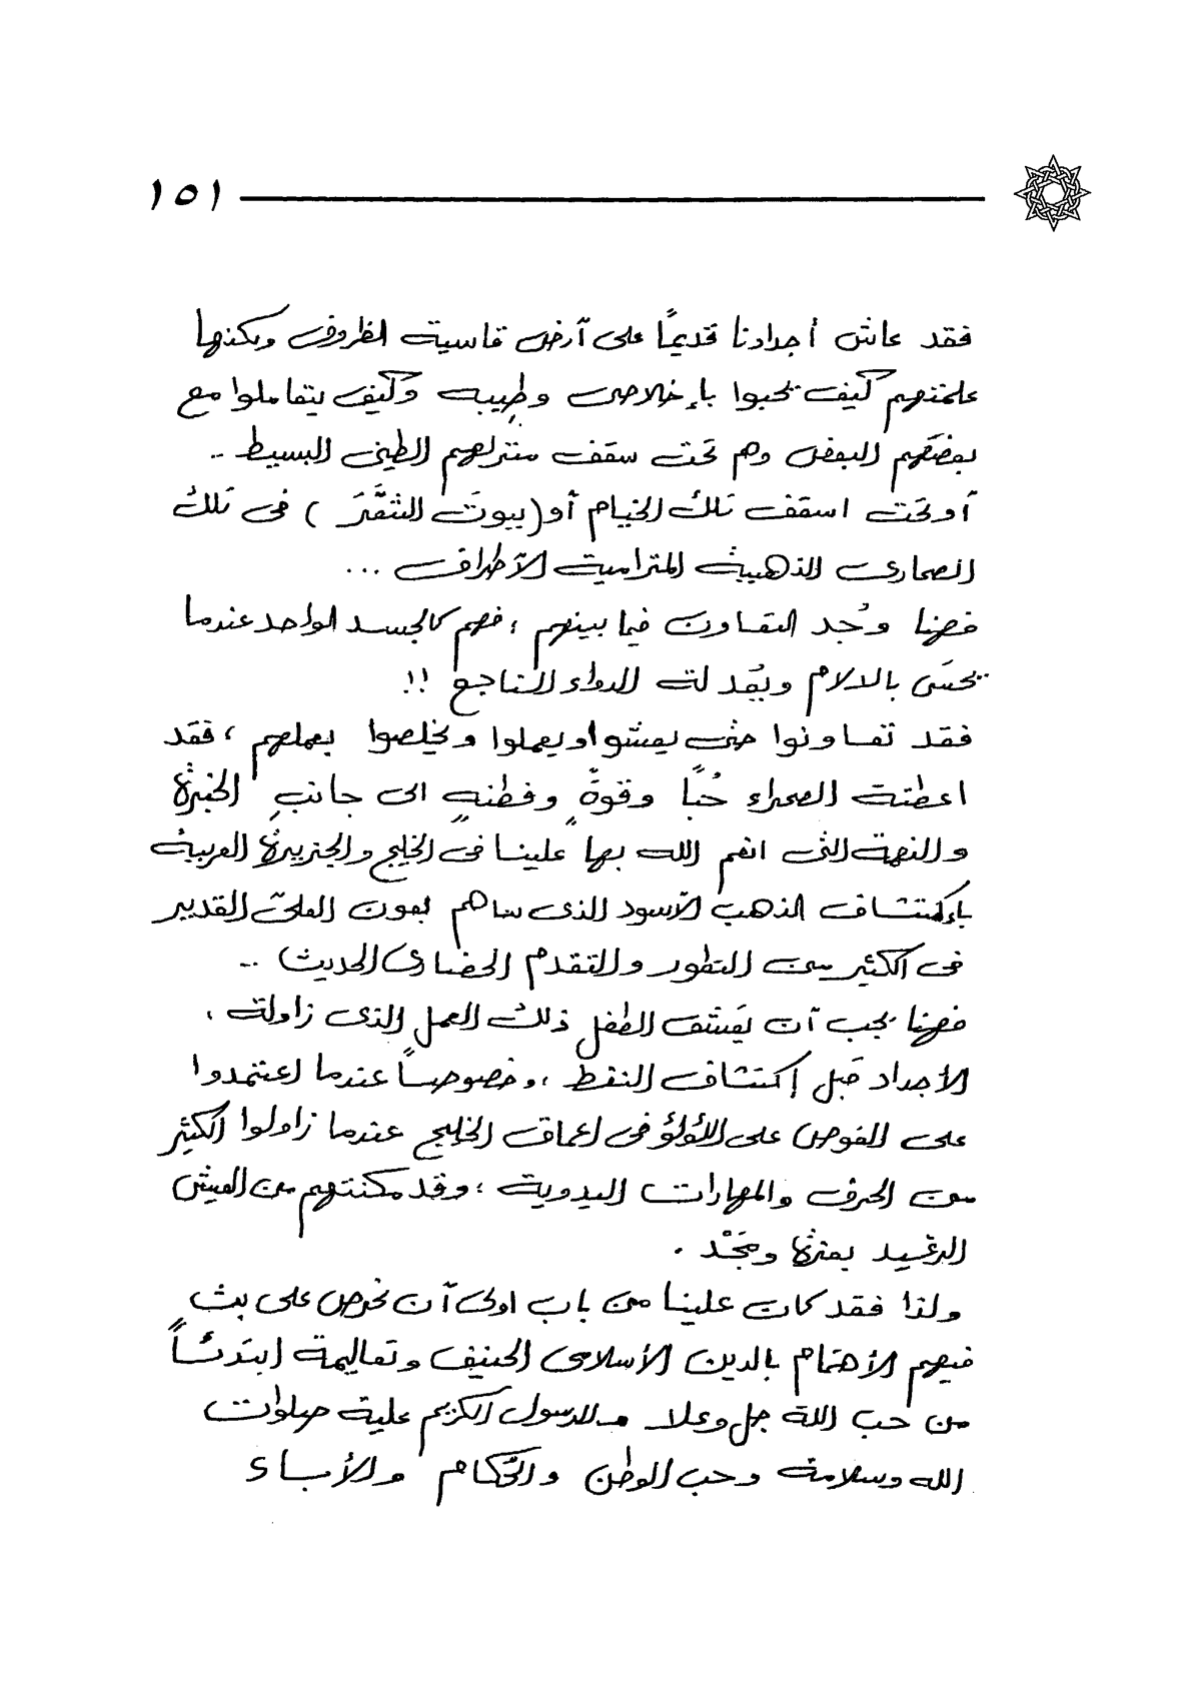 ١٥١
فقد عاش أجدادنا قديماً على أرض قاسية الظروف ولكنها
علمتهم كيف يحبوا بإخلاص وطيبه وكيف يتعاملوا مع
بعضهم البعض وهم تحت سقف منزلهم الطيني البسيط ..
أو تحت اسقف تلك الخيام أو (بيوت الشَّعَر) في تلك
الصحارى الذهبية المترامية الأطراف ...
فهنا وُجد التعاون فيما بينهم ، فهم كالجسد الواحد عندما
يحسَّ بالالام ويجد له الدواء الناجع !!
فقد تعاونوا حتى يعيشوا ويعملوا ويخلصوا بعملهم ، فقد
اعطته الصحراء حُباً وقوةً وفطنهٍ الى جانبِ الخبرة
والنعمة التي انعم الله بها علينا في الخليج والجزيرة العربية
بإكتشاف الذهب الأسود الذي ساهم بعون العليّ القدير
في الكثير من التطور والتقدم الحضاري الحديث ..
فهنا يجب أن يَعشق الطفل ذلك العمل الذي زاوله ،
الأجداد قبل إكتشاف النفط ، وخصوصاً عندما اعتمدوا
على الغوص على اللؤلؤ في اعماق الخليج عندما زاولوا الكثير
من الحرف والمهارات اليدوية ، وقد مكنتهم من العيش
الرغيد بعزة ومَجْد .
ولذا فقد كان علينا من باب اولى أن نحرص على بث
فيهم الأهتمام بالدين الأسلامي الحنيف وتعاليمة ابتدئاً
من حب اللة جل وعلا والرسول الكريم علية صلوات
الله وسلامة وحب الوطن والحُكام والأباء